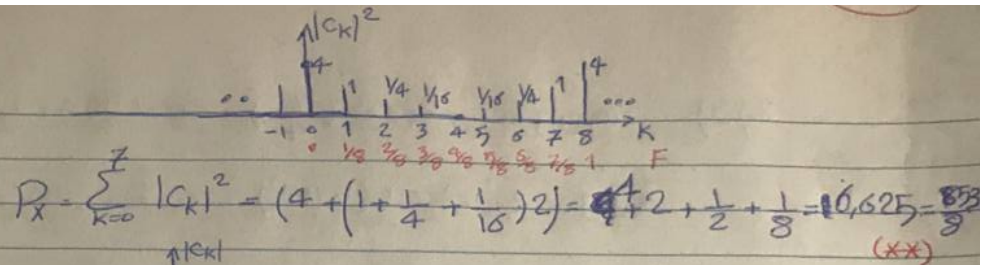 |CK|²
4 1 1/4 1/16 1/16 1/4 1 4
.. ...
-1 0 1 2 3 4 5 6 7 8 K
0 1/8 2/8 3/8 4/8 5/8 6/8 7/8 1 F
Px = 7∑k=0 |CK|² = (4 + (1 + 1/4 + 1/16) 2) = 4 + 2 + 1/2 + 1/8 = 6,625 =
|CK| (xx)